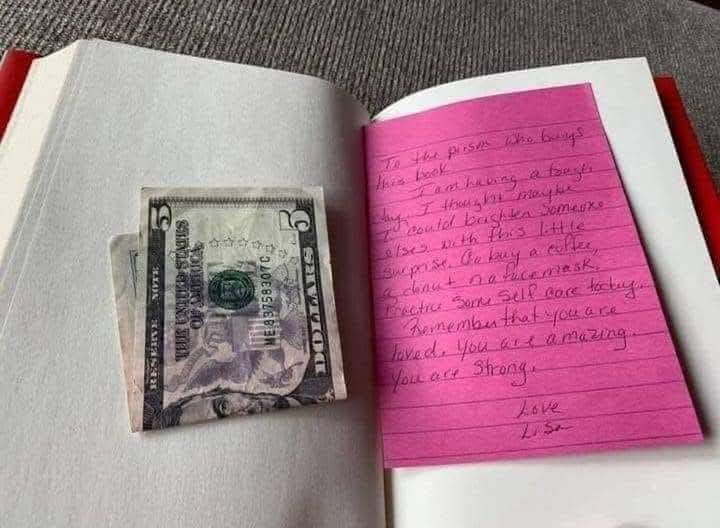 RESERVE NOTE
THE UNITED STATES
OF AMERICA
ME83758307C
5
5
DOLLARS
To the pirson who buys
this book.
I am having a tough
day. I thought maybe
I could brighten someone
elses with this little
surprise. Go buy a coffee,
a donut or a face mask.
Practice some self care today.
Remember that you are
loved. You are amazing.
You are strong.
Love
Lisa